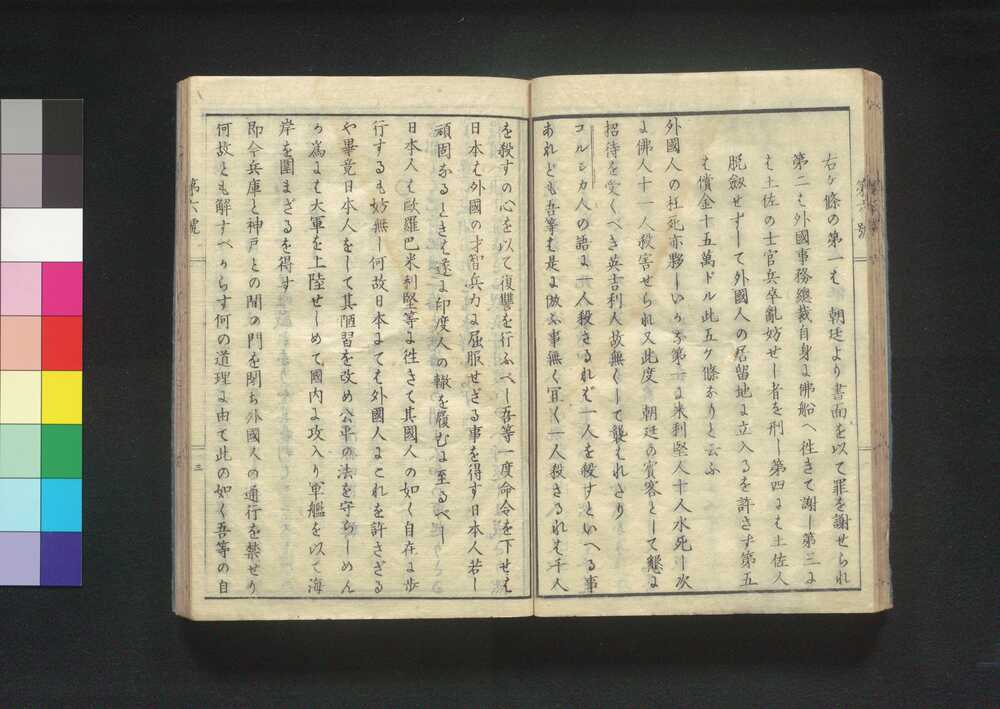 右ケ條の第一は 朝廷より書面を以て罪を謝せられ
第二は外國事務總裁自身に佛船へ徃きて謝し第三に
は土佐の士官兵卒亂妨せし者を刑し第四には土佐人
脱劔せずして外國人の居留地に立入るを許さず第五
は償金十五萬ドル此五ケ條なりと云ふ
外國人の枉死亦夥しいかな第一に米利堅人十人水死し次
に佛人十一人殺害せられ又此度 朝廷の賓客として懇に
招待を受くべき英吉利人故無くして襲はれたり
コルシカ人の語に一人殺さるれば一人を殺すといへる事
あれども吾等は是に倣ふ事無く宜く一人殺さるれは千人
を殺すの心を以て復讐を行ふべし吾等一度命令を下せは
日本は外國の才智兵力に屈服せざる事を得す日本人若し
頑固なるときは遂に印度人の轍を履むに至るべし
日本人は歐羅巴米利堅等に徃きて其國人の如く自在に歩
行するも妨無し何故日本にては外國人にこれを許さざる
や畢竟日本人をして其陋習を改め公平の法を守らしめん
か爲には大軍を上陸せしめて國内に攻入り軍艦を以て海
岸を圍まざるを得す
即今兵庫と神戸との間の門を閉ち外國人の通行を禁せり
何故とも解すべからす何の道理に由て此の如く吾等の自
第六號
三